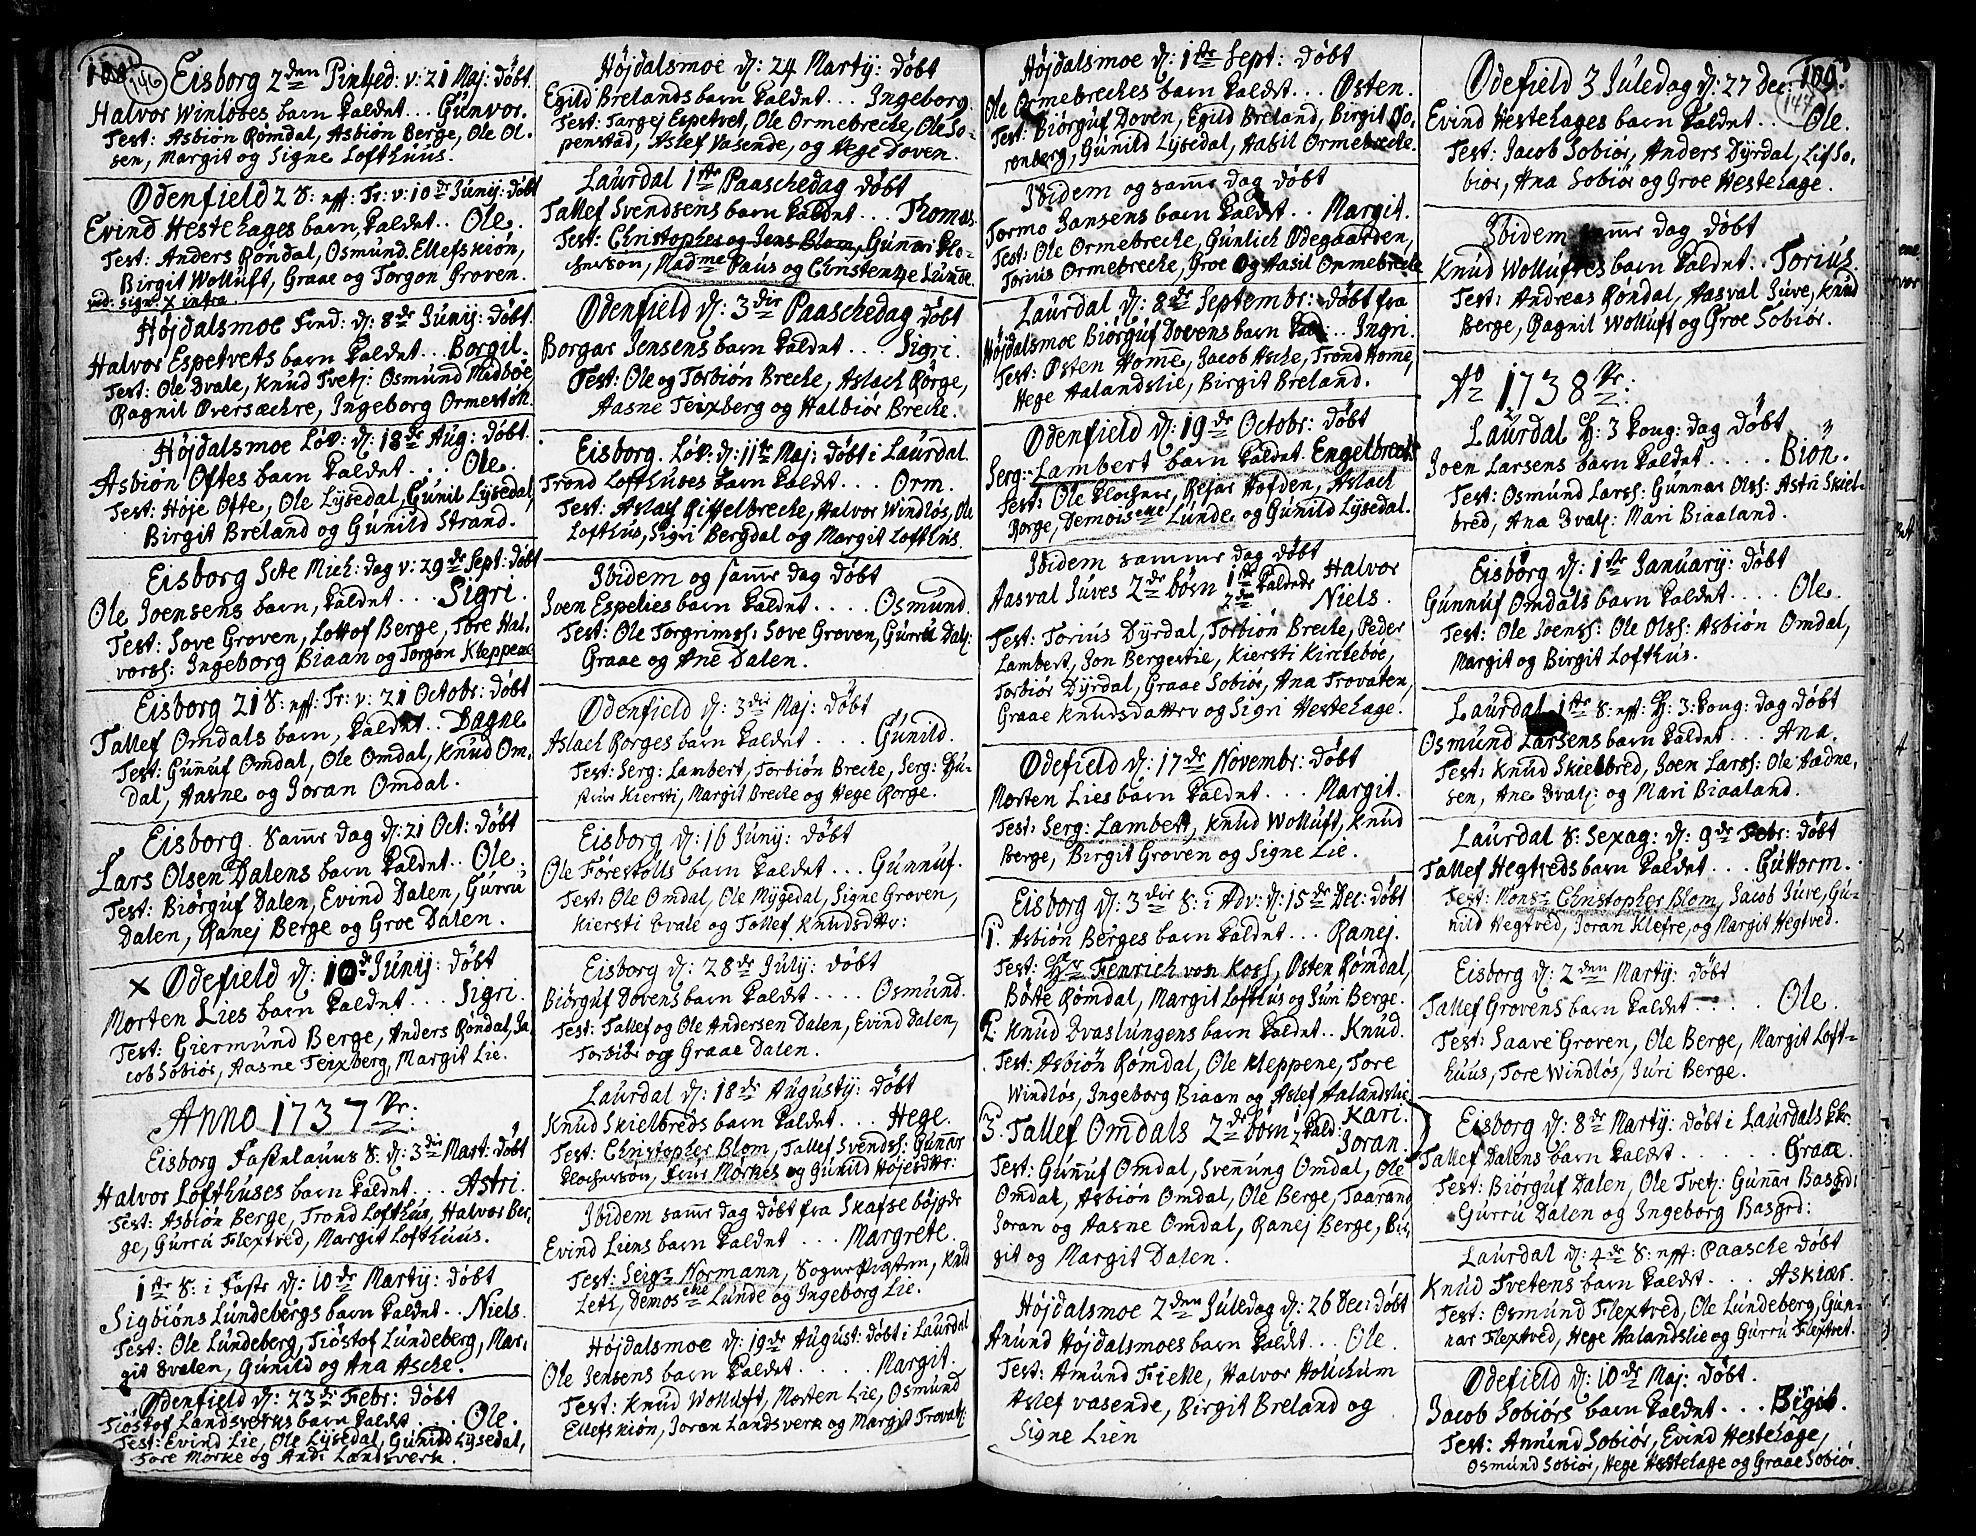 146
Eisborg 2den Pintzed: v: 21 Maj: døbt
Halvor Winløses barn kaldet... Gunvor.
Test: Asbiøn Rømdal, Asbiøn Berge, Ole Ol-
sen, Margit og Signe Lofthuus.
Ødenfield 2 S: eff: Tr: v: 10de Junij: døbt
Evind Hestehages barn, kaldet... Ole.
Test: Anders Røndal, Osmund Ellefskiøn,
Birgit Wolluft, Graae og Torgon Groven.
vid: sign: X infra
Højdalsmoe Fred: d: 8de Junij: døbt
Halvor Espetvets barn kaldet... Borgil.
Test: Ole Qvale, Knud Tvetj: Osmund Midbøe,
Ragnil Oversæchre, Ingeborg Ormestøh.
Højdalsmoe Løv: d: 18de Aug: døbt
Asbiøn Oftes barn kaldet.... Ole.
Test: Høje Ofte, Ole Lijsedal, Gunil Lijsedal,
Birgit Breland og Gunild Strand.
Eisborg Scte Mich: dag v: 29de Sept: døbt
Ole Joensens barn, kaldet... Sigri.
Test: Sove Groven, Lottof Berge, Tore Hal-
vorss: Ingeborg Biaan og Torgon Kleppene
Eisborg 21 S: eff: Tr: v: 21 Octobr: døbt
Tallef Omdals barn, kaldet.. Dagne
Test: Gunnuf Omdal, Ole Omdal, Knud Om-
dal, Aasne og Joran Omdal.
Eisborg. Samme dag d: 21 Oct: døbt
Lars Olsen Dalens barn kaldet.. Ole.
Test: Biørguf Dalen, Evind Dalen, Gurru
Dalen, Ranej Berge og Groe Dalen.
X Ødefield d: 10de Junij: døbt
Morten Lies barn kaldet... Sigri.
Test: Giermund Berge, Anders Røndal, Ja-
cob Sobiør, Aasne Teixberg, Margit Lie.
Anno 1737 Vr:
Eisborg Fastelauns S: d: 3die Mart: døbt
Halvor Lofthuses barn kaldet... Astri.
Test: Asbiøn Berge, Trond Lofthus, Halvor Ber-
ge, Gurru Flextved, Margit Lofthuus.
1ste S: i Faste d: 10de Martij: døbt
Sigbiøns Lundebergs barn kaldet.. Niels.
Test: Ole Lundeberg, Tiøstof Lundeberg, Mar-
git Qvalen, Gunild og Ana Asche.
Ødenfield d: 23de Febr: døbt
Tiøstof Landsverks barn kaldet.... Ole.
Test: Evind Lie, Ole Lysedal, Gunild Lysedal,
Tore Morke og Andi Landsverk.
Højdalsmoe d: 24 Martij: døbt
Egild Brelands barn kaldet... Ingeborg.
Test: Targej Espetvet, Ole Ormebreche, Ole So-
penstad, Aslef Vasende, og Hege Doven.
Laurdal 1ste Paaschedag døbt
Tallef Svendsens barn kaldet... Thomas.
Test: Christopher og Jens Blom, Gunnar Klo-
cherson, Madme Paus og Christentze Lunde.
Ødenfield d: 3die Paaschedag døbt
Borgar Jensens barn kaldet... Sigri.
Test: Ole og Torbiøn Breche, Aslach Rørge,
Aasne Teixberg og Halbiør Breche.
Eisborg. Løv: d: 11te Maj: døbt i Laurdal.
Trond Lofthuses barn kaldet... Orm.
Test: Aslach Riffelbreche, Halvor Windløs, Ole
Lofthus, Sigri Bergdal og Margit Lofthus.
Ibidem og samme dag døbt
Iven Espelies barn kaldet.... Osmund.
Test: Ole Torgrimss: Sove Groven, Gurru Dal:
Graae og Ane Dalen.
Ødenfield d: 3die Maj: døbt
Aslach Rorges barn kaldet.... Gunild.
Test: Serg: Lambert, Torbiøn Breche, Serg: Hu-
strue Kiersti, Margit Breche og Hege Rorge.
Eisborg d: 16 Junij: døbt
Ole Førestølls barn kaldet... Gunnuf.
Test: Ole Omdal, Ole Mygedal, Signe Groven,
Kiersti Qvale og Tallef Knudsdttr:
Eisborg d: 28de Julij: døbt
Biørguf Dovens barn kaldet.... Osmund.
Test: Tallef og Ole Andersen Dalen, Evind Dalen,
Torbiør og Graae Dalen.
Laurdal d: 18de Augustij: døbt
Knud Skielbreds barn kaldet... Hege.
Test: Christopher Blom, Tallef Svendss: Gunnar
Klocherson, Jens Morkes og Gunild Højesdttr:
Ibidem samme dag døbt fra Skafse bøjgde
Evind Liens barn kaldet... Margrete.
Test: Seigr Normann, Sognepræsten, Knud
Leth, Demoselle Lunde og Ingeborg Lie.
Højdalsmoe d: 19de August: døbt i Laurdal
Ole Jensens barn kaldet... Margit.
Test: Knud Wolluft, Morten Lie, Osmund
Ellefskiøn, Joran Landsverk og Margit Trovatj:
Højdalsmoe d: 1ste Sept: døbt
Ole Ormebreches barn kaldet... Østen.
Test: Biørguf Doven, Egild Breland, Birgit Qo-
ronberg, Gunild Lysedal, Aasil Ormebreche.
Ibidem og samme dag døbt
Tormo Jansens barn kaldet.. Margit.
Test: Ole Ormebreche, Gunlich Ødegaarden,
Torius Ormebreche, Groe og Aasil Ormebreche
Laurdal d: 8de Septembr: døbt fra
Højdalsmoe Biørguf Dovens barn kald... Ingri.
Test: Østen Home, Jacob Asche, Trond Home,
Hege Aalandslie, Birgit Breland.
Ødenfield d: 19de Octobr: døbt
Serg: Lambert barn kaldet. Engelbreth
Test: Ole Klocher, Refar Høfden, Aslach
Rorge, Demoiselle Lunde, og Gunild Lysedal.
Ibidem samme dag døbt
Aasval Juves 2de børn 1ste kaldede Halvor
2den Niels.
Test: Torius Dyrdal, Torbiøn Breche, Peder
Lambert, Jon Bergestie, Kiersti Kirchebøe,
Torbiør Dyrdal, Graae Sobiør, Ana Trovaten,
Graae Knudsdatter og Sigri Hestehage.
Ødefield d: 17de Novembr: døbt
Morten Lies barn kaldet... Margit.
Test: Serg: Lambert, Knud Wolluft, Knud
Berge, Birgit Groven og Signe Lie.
Eisborg d: 3die S: i Adv: d: 15de Dec: døbt
1. Asbiøn Berges barn kaldet... Ranej.
Test: Hr Henrich von Koss, Østen Rømdal,
Bøite Rømdal, Margit Lofthus og Juri Berge.
2. Knud Qvaslungens barn kaldet.. Knud.
Test: Asbiøn Rømdal, Ole Kleppene, Tore
Windløs, Ingeborg Biaan og Aslef Aalandslie
3. Tallef Omdals 2de børn 1 kald: Kari.
2 Joran.
Test: Gunuf Omdal, Svennung Omdal, Ole
Omdal, Asbiøn Omdal, Ole Berge, Taarand,
Joran og Aasne Omdal, Ranej Berge, Bir-
git og Margit Dalen.
Højdalsmoe 2den Juledag d: 26 Dec: døbt
Anund Højdalsmoes barn kaldet... Ole.
Test: Amund Fielle, Halvor Holichum
Aslef vasende, Birgit Breland og
Signe Lien
109.
147
Ødefield 3 Juledag d: 27 Dec:
Evind Hestehages barn kaldet... Ole.
Test: Jacob Sobiør, Anders Dyrdal, Lif So-
biør, Ana Sobiør og Groe Hestehage.
Ibidem samme dag døbt
Knud Wolluftes barn kaldet.. Torius
Test: Andreas Røndal, Aasval Juve, Knud
Berge, Ragnil Wolluft og Groe Sobiør.
Ao 1738 Vr:
Laurdal H: 3 kong: dag døbt
Joen Larsens barn kaldet..... Biøn.
Test: Osmund Larss: Gunnar Olss: Astri Skiel-
bred, Ana Qvalj: Mari Biaaland.
Eisborg d: 1ste January: døbt
Gunnuf Omdals barn kaldet.... Ole.
Test: Ole Joenss: Ole Olss: Asbiøn Omdal,
Margit og Birgit Lofthus.
Laurdal 1ste S: eff: H: 3: kong: dag døbt
Osmund Larsens barn kaldet... Ana.
Test: Knud Skielbred, Joen Larss: Ole Aadne-
sen, Ane Qvalj: og Mari Biaaland.
Laurdal S: Sexag: d: 9de Febr: døbt
Tallef Hegtveds barn kaldet... Guttorm.
Test: Monsr Christopher Blom, Jacob Juve, Gu-
nild Hegtved, Joran Klefre, og Margit Hegtved.
Eisborg d: 2den Martij: døbt
Tallef Grovens barn kaldet.... Ole.
Test: Saave Groven, Ole Berge, Margit Loft-
huus, Tore Windløs, Juri Berge.
Eisborg d: 8de Martij: døbt i Laurdals Kir:
Tallef Dalens barn kaldet...... Graae.
Test: Biørguf Dalen, Ole Tvetj: Gunnar Basgrd:
Gurru Dalen og Ingeborg Basgrd:
Laurdal d: 4de S: eff: Paasche døbt
Knud Tvetens barn kaldet.... Askiær.
Test: Osmund Flextved, Ole Lundeberg, Gun-
nar Flextved, Hege Aalandslie og Gurru Flextvet.
Ødefield d: 10de Maj: døbt.
Jacob Sobiørs barn kaldet... Birgit.
Test: Annund Sobiør, Evind Hestehage,
Osmund Sobiør, Hege Hestehage og Graae Sobiør